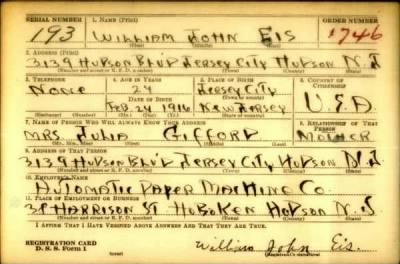 SERIAL NUMBER 1. NAME (Print) ORDER NUMBER
193 WILLIAM JOHN EIS 1746
(First) (Middle) (Last)
2. ADDRESS (Print)
3139 HUDSON BLVD JERSEY CITY HUDSON N.J
(Number and street or R. F. D. number) (Town) (County) (State)
3. TELEPHONE 4. AGE IN YEARS 5. PLACE OF BIRTH 6. COUNTRY OF CITIZENSHIP
NONE 24 JERSEY CITY
DATE OF BIRTH (Town or county)
FEB 24 1916 NEW JERSEY U.S.A
(Exchange) (Number) (Mo.) (Day) (Yr.) (State or country)
7. NAME OF PERSON WHO WILL ALWAYS KNOW YOUR ADDRESS 8. RELATIONSHIP OF THAT PERSON
MRS. JULIA GIFFORD MOTHER
(Mr., Mrs., Miss) (First) (Middle) (Last)
9. ADDRESS OF THAT PERSON
3139 HUDSON BLVD JERSEY CITY HUDSON N.J
(Number and street or R. F. D. number) (Town) (County) (State)
10. EMPLOYER'S NAME
AUTOMATIC PAPER MACHINE CO.
11. PLACE OF EMPLOYMENT OR BUSINESS
HARRISON ST HOBOKEN HUDSON N.J
(Number and street or R. F. D. number) (Town) (County) (State)
I AFFIRM THAT I HAVE VERIFIED ABOVE ANSWERS AND THAT THEY ARE TRUE.
REGISTRATION CARD
D. S. S. Form 1 (over) William John Eis.
(Registrant's signature)